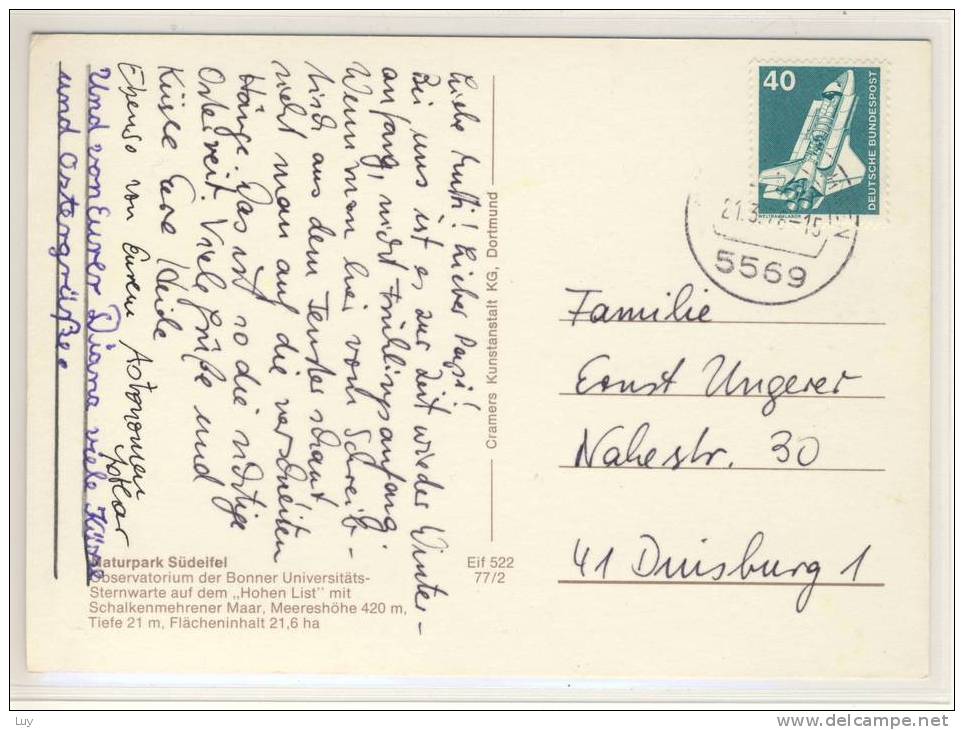 Liebe Mutti! Lieber Papi!
Bei uns ist es zur Zeit wieder Winter-
anfang, nicht Frühlingsanfang.
Wenn man hier vom Schreib-
tisch aus dem Fenster schaut
sieht man auf die verschneiten
Hänge. Das ist so die richtige
Osterzeit. Viele Grüße und
Küsse Eure Heide
Ebenso von Eurem Astronomen
Und von Eurer Diana viele Küsse
und Ostergrüße
Naturpark Südeifel
Observatorium der Bonner Universitäts-
Sternwarte auf dem „Hohen List" mit
Schalkenmehrener Maar, Meereshöhe 420 m,
Tiefe 21 m, Flächeninhalt 21,6 ha
Eif 522
77/2
Cramers Kunstanstalt KG, Dortmund
40
DEUTSCHE BUNDESPOST
WELTRAUMLABOR
5569
Familie
Ernst Ungerer
Nahestr. 30
41 Duisburg 1
Luy
www.delcampe.net